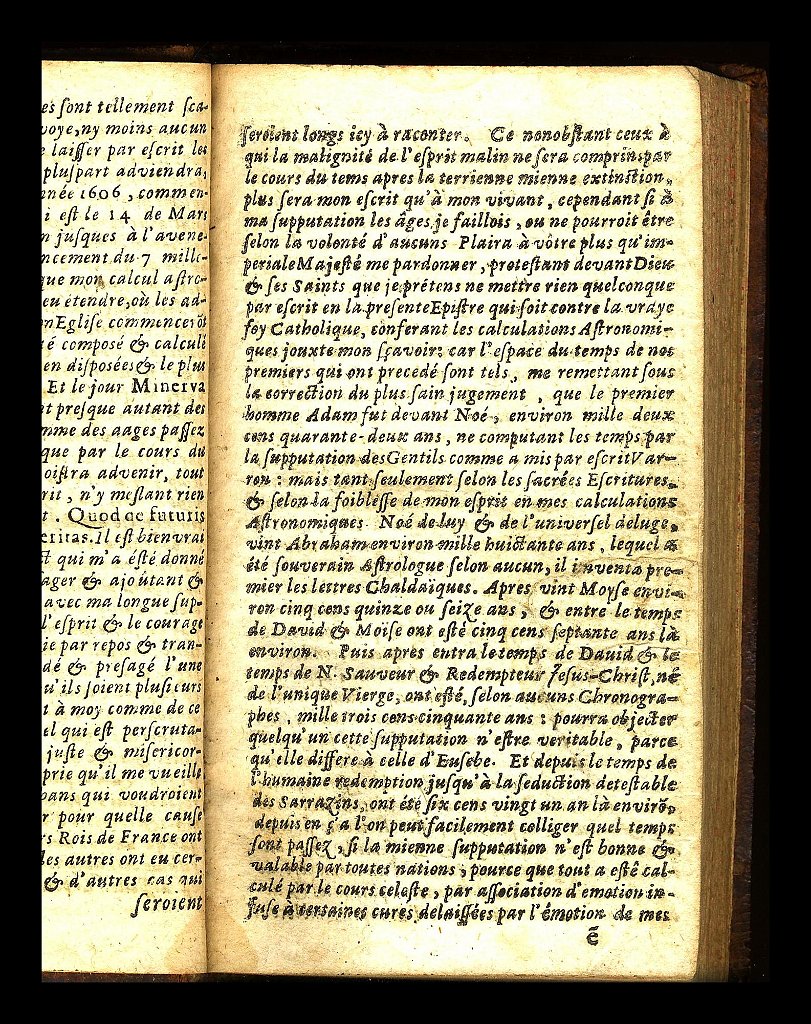 es sont tellement sca-
voye, ny moins aucun
e laisser par escrit les
pluspart adviendra,
nnée 1606, commen-
i est le 14 de Mars
n jusques à l'avene-
ncement du 7 mille-
que mon calcul astro-
eu étendre, où les ad-
nEglise commencerõt
té composé & calculé
en disposées & le plus
Et le jour Minerva
nt presque autant des
mme des aages passez
que par le cours du
oistra advenir, tout
rit, n'y meslant rien
t. Quod de futuris
eritas. Il est bien vrai
ct qui m'a ésté donné
ager & ajoûtant &
avec ma longue sup-
l'esprit & le courage
ie par repos & tran-
dé & presagé l'une
u'ils soient plusieurs
t à moy comme de ce
el qui est perscruta-
juste & misericor-
prie qu'il me vueille
pans qui voudroient
r pour quelle cause
rs Rois de France ont
les autres ont eu cer-
& d'autres cas qui
seroient
seroient longs icy à raconter. Ce nonobstant ceux à
qui la malignité de l'esprit malin ne sera comprins par
le cours du tems apres la terrienne mienne extinction,
plus sera mon escrit qu'à mon vivant, cependant si à
ma supputation les âges je faillois, ou ne pourroit être
selon la volonté d'aucuns Plaira à vôtre plus qu'im-
periale Majesté me pardonner, protestant devant Dieu
& ses Saints que je prétens ne mettre rien quelconque
par escrit en la presente Epistre qui soit contre la vraye
foy Catholique, conferant les calculations Astronomi-
ques jouxte mon sçavoir: car l'espace du temps de nos
premiers qui ont precedé sont tels, me remettant sous
la correction du plus sain jugement, que le premier
homme Adam fut devant Noé, environ mille deux
cens quarante-deux ans, ne computant les temps par
la supputation des Gentils comme a mis par escrit Var-
ron: mais tant seulement selon les sacrées Escritures,
& selon la foiblesse de mon esprit en mes calculations
Astronomiques Noé de luy & de l'universel deluge,
vint Abraham environ mille huictante ans, lequel a
été souverain Astrologue selon aucun, il inventa pre-
mier les lettres Chaldaïques. Apres vint Moyse envi-
ron cinq cens quinze ou seize ans, & entre le temps
de David & Moïse ont esté cinq cens septante ans là
environ. Puis apres entra le temps de David & le
temps de N. Sauveur & Redempteur Jesus-Christ, né
de l'unique Vierge, ont esté, selon aucuns Chronogra-
phes, mille trois cens cinquante ans: pourra objecter
quelqu'un cette supputation n'estre veritable, parce
qu'elle differe à celle d'Eusebe. Et depuis le temps de
l'humaine redemption jusqu'à la seduction detestable
des Sarrazins, ont été six cens vingt un an là envirõ,
depuis en ç'a l'on peut facilement colliger quel temps
sont passez, si la mienne supputation n'est bonne &
valable par toutes nations, pource que tout a esté cal-
culé par le cours celeste, par association d'emotion in-
fuse à certaines cures delaissées par l'émotion de mes
é